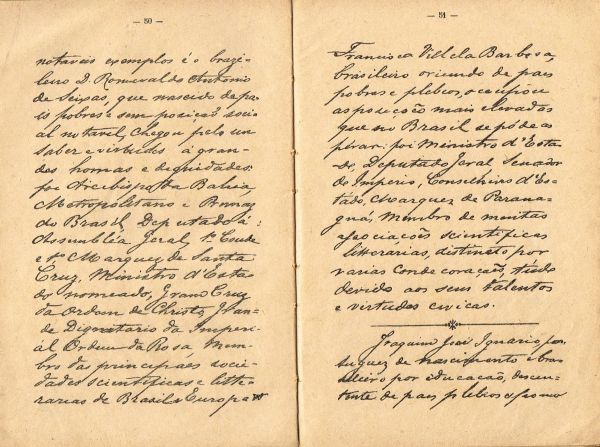 — 50 —
notaveis exemplos é o brazi-
leiro D. Romualdo Antonio
de Seixas, que nascido de pa-
es pobres e sem posição soci-
al notavel, chegou pelo seu
saber e virtudes á gran-
des honras e dignidades:
foi Arcebispo da Bahia
Metropolitano e Primaz
do Brasil, Deputado á
Assembléa Geral, 1º Conde
e 1º Marquez de Santa
Cruz, Ministro d'Esta-
do nomeado, Gran Cruz
da Ordem de Christo, Gran-
de Dignatario da Imperi-
al Ordem da Rosa, Mem-
bro das principaes socie-
dades scientificas e litte-
rarias do Brasil e Europa
— 51 —
Francisco Villela Barbosa,
brasileiro oriundo de paes
pobres e plebeos, occupou
as posições mais elevadas
que no Brasil se póde as-
pirar: foi Ministro d'Esta-
do, Deputado Geral, Senador
do Imperio, Conselheiro d'Es-
tado, Marquez de Parana-
guá, Membro de muitas
associacões scientificas
litterárias, distincto por
varias condecorações, tudo
devido aos seus talentos
e virtudes civicas.
Joaquim José Ignacio, por-
tuguez de nascimento e bra-
sileiro por educação, descen-
dente de paes plebeos